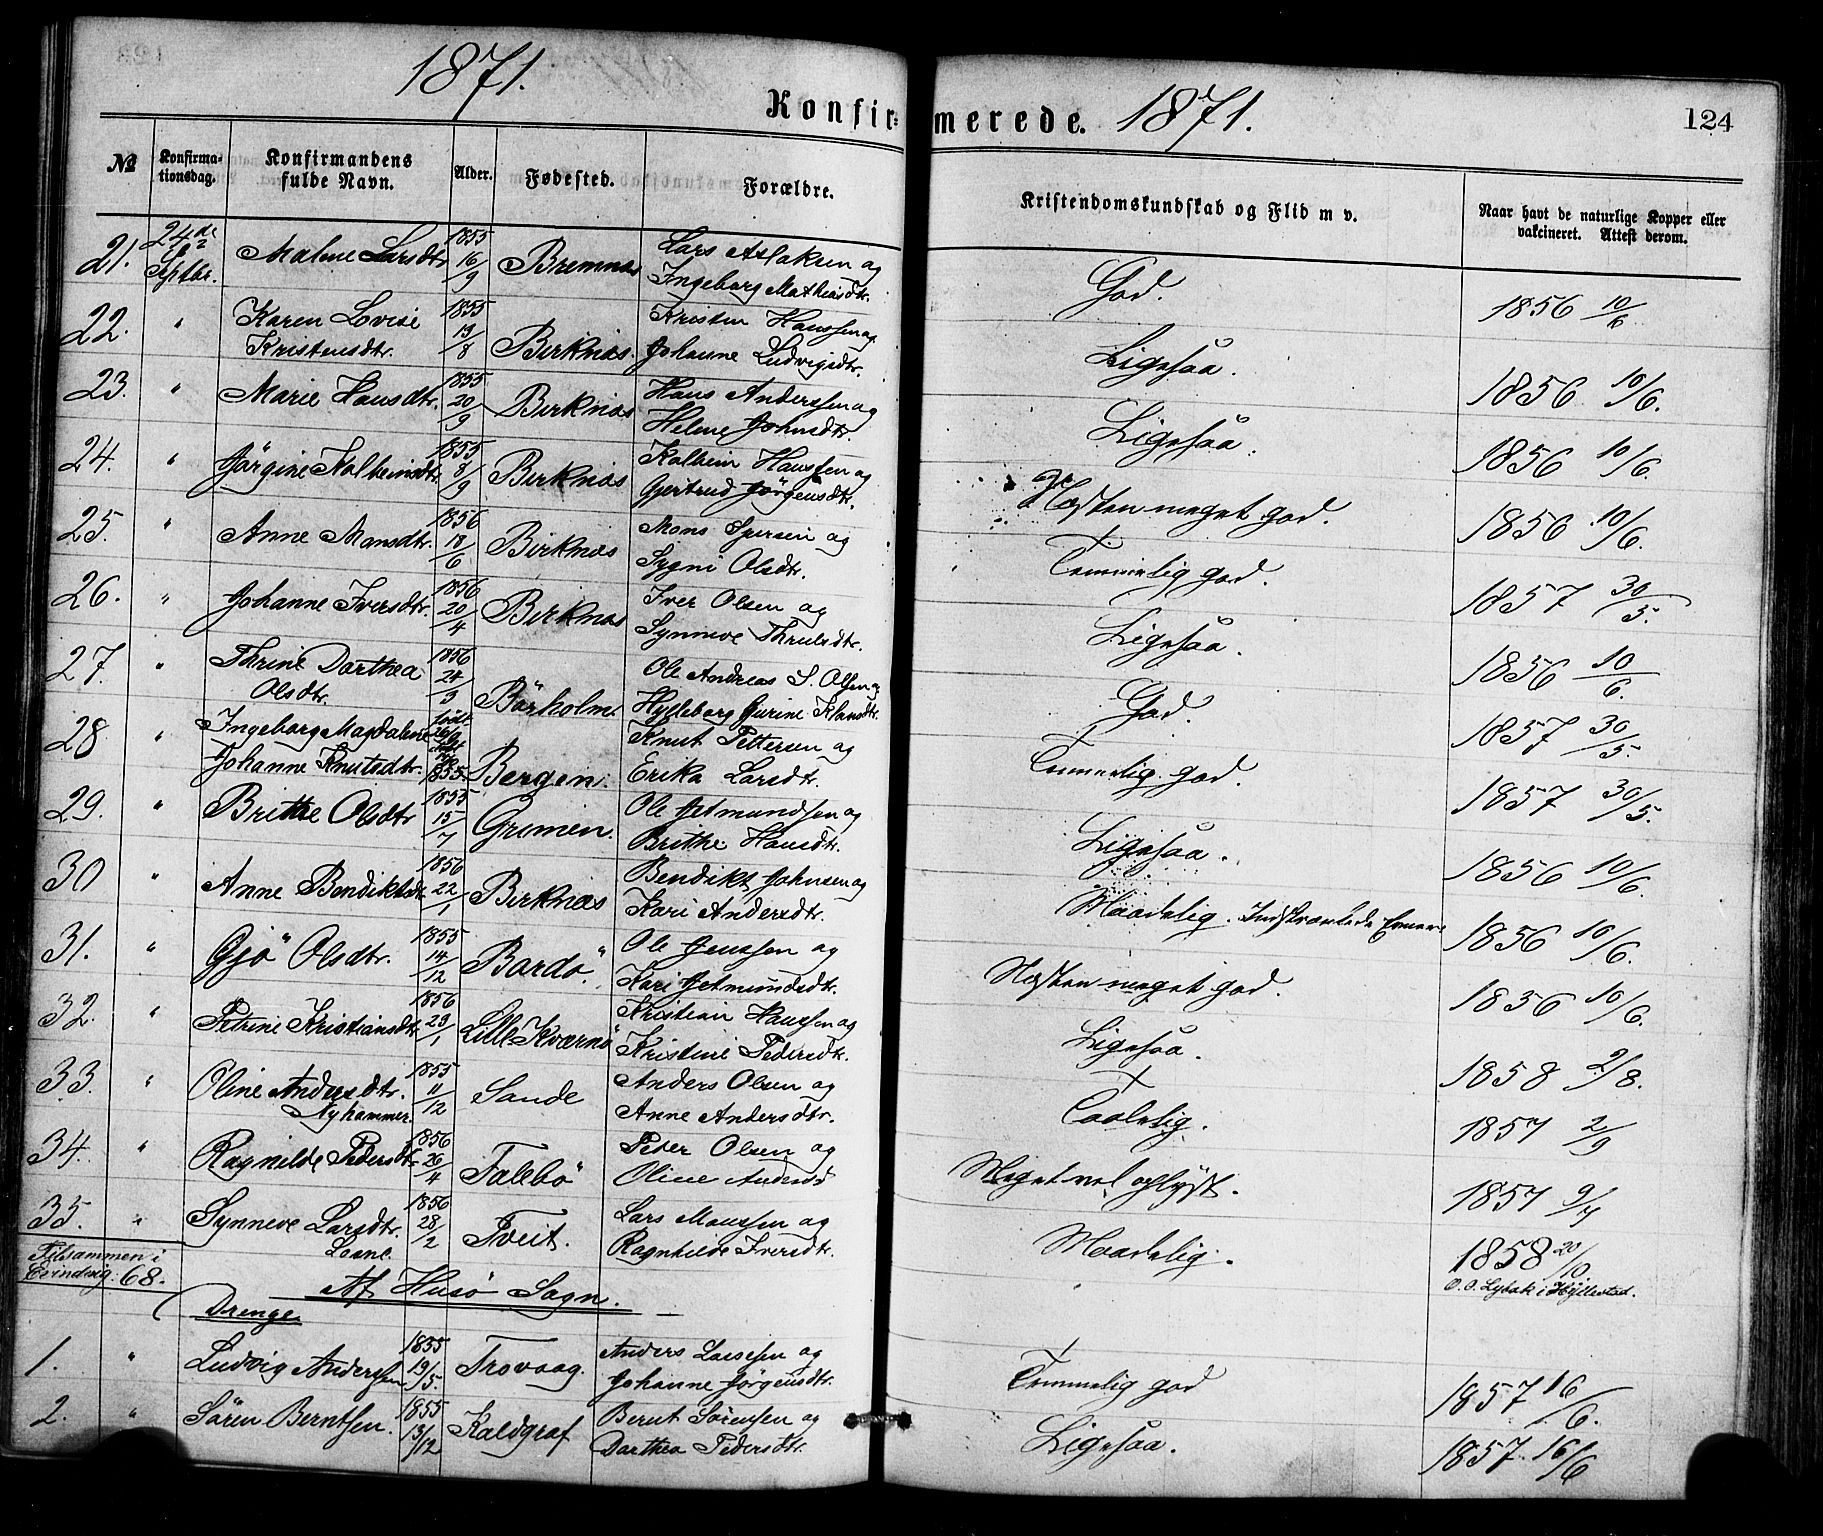 1871.
Konfir-
merede. 1871.
124
№
Konfirma-
tionsdag.
Konfirmandens
fulde Navn.
Alder.
Fødested.
Forældre.
Kristendomskundskab og Flid m v.
Naar havt de naturlige Kopper eller
vakcineret. Attest derom.
21. 24de Septbr. Malene Larsdtr 1855 16/9 Bremnæs Lars Aslaksen og
Ingeborg Mathiasdtr. God. 1856 10/6.
22. " Karen Lovise
Kristensdtr. 1855 19/8 Birknæs. Kristen Hanssen og
Johanne Ludvigsdtr. Ligesaa. 1856 10/6.
23. " Marie Hansdtr. 1855 20/9 Birknæs Hans Anderssen og
Helene Johnsdtr. Ligesaa. 1856 10/6.
24. " Jörgine Kolbeinsdtr 1855 8/9 Birknæs Kolbein Hanssen og
Gjertrud Jörgensdtr. Næsten meget god. 1856 10/6.
25. " Anne Monsdtr. 1856 18/6 Birknæs Mons Iversen og
Sygni Olsdtr. Temmelig god. 1857 30/5.
26. " Johanne Iversdtr. 1856 20/4 Birknæs Iver Olsen og
Synneve Thrulsdtr. Ligesaa. 1856 10/6.
27. " Thrine Dorthea
Olsdtr. 1856 24/3 Börholm. Ole Andreas S. Olsen og
Hylleborg Jurine Klausdtr. God. 1857 30/5.
28 " Ingeborg Magdalene
Johanne Knutsdtr. født 1855. Bergen. Knut Pettersen og
Erika Larsdtr. Temmelig god. 1857 30/5.
29. " Brithe Olsdtr 1855 15/7 Grimen. Ole Jetmundsen og
Brithe Hansdtr. Ligesaa. 1856 10/6.
30 " Anne Bendiktsdtr 1856 22/1 Birknæs Bendikt Johnsen og
Kari Andersdtr. Maadelig. Indskrænkede Evner. 1856 10/6.
31. " Gjö Olsdtr. 1855 14/12 Bardö. Ole Jenssen og
Kari Jetmundsdtr. Næsten meget god. 1856 10/6.
32. " Petrine Kristiansdtr. 1856 29/1 Lille Kværnö Kristian Hanssen og
Kristine Pedersdtr. Ligesaa. 1858 2/8.
33. " Oline Andersdtr.
Nyhammer. 1855 11/12 Sande Anders Olsen og
Anne Andersdtr. Taalelig. 1857 2/9
34. " Ragnilde Pedersdtr. 1856 26/4 Talebö Peder Olsen og
Oline Andersd Meget vel oplyst. 1857 9/7
35. " Synneve Larsdtr.
Losne. 1856 28/2 Tveit. Lars Monssen og
Ragnhilde Iversdtr. Maadelig. 1858 20/10
O. O. Lybæk i Hyllestad.
Tilsammen i
Evindvig: 68.
Af Husö Sogn.
Drenge
1. " Ludvig Anderssen 1855 19/5. Trovaag. Anders Larssen og
Johanne Jörgensdtr. Temmelig god 1857 16/6.
2. " Sören Berntsen. 1855 13/12 Kaldgraf Bernt Sörensen og
Dorthea Pedersdtr. Ligesaa. 1857 16/6